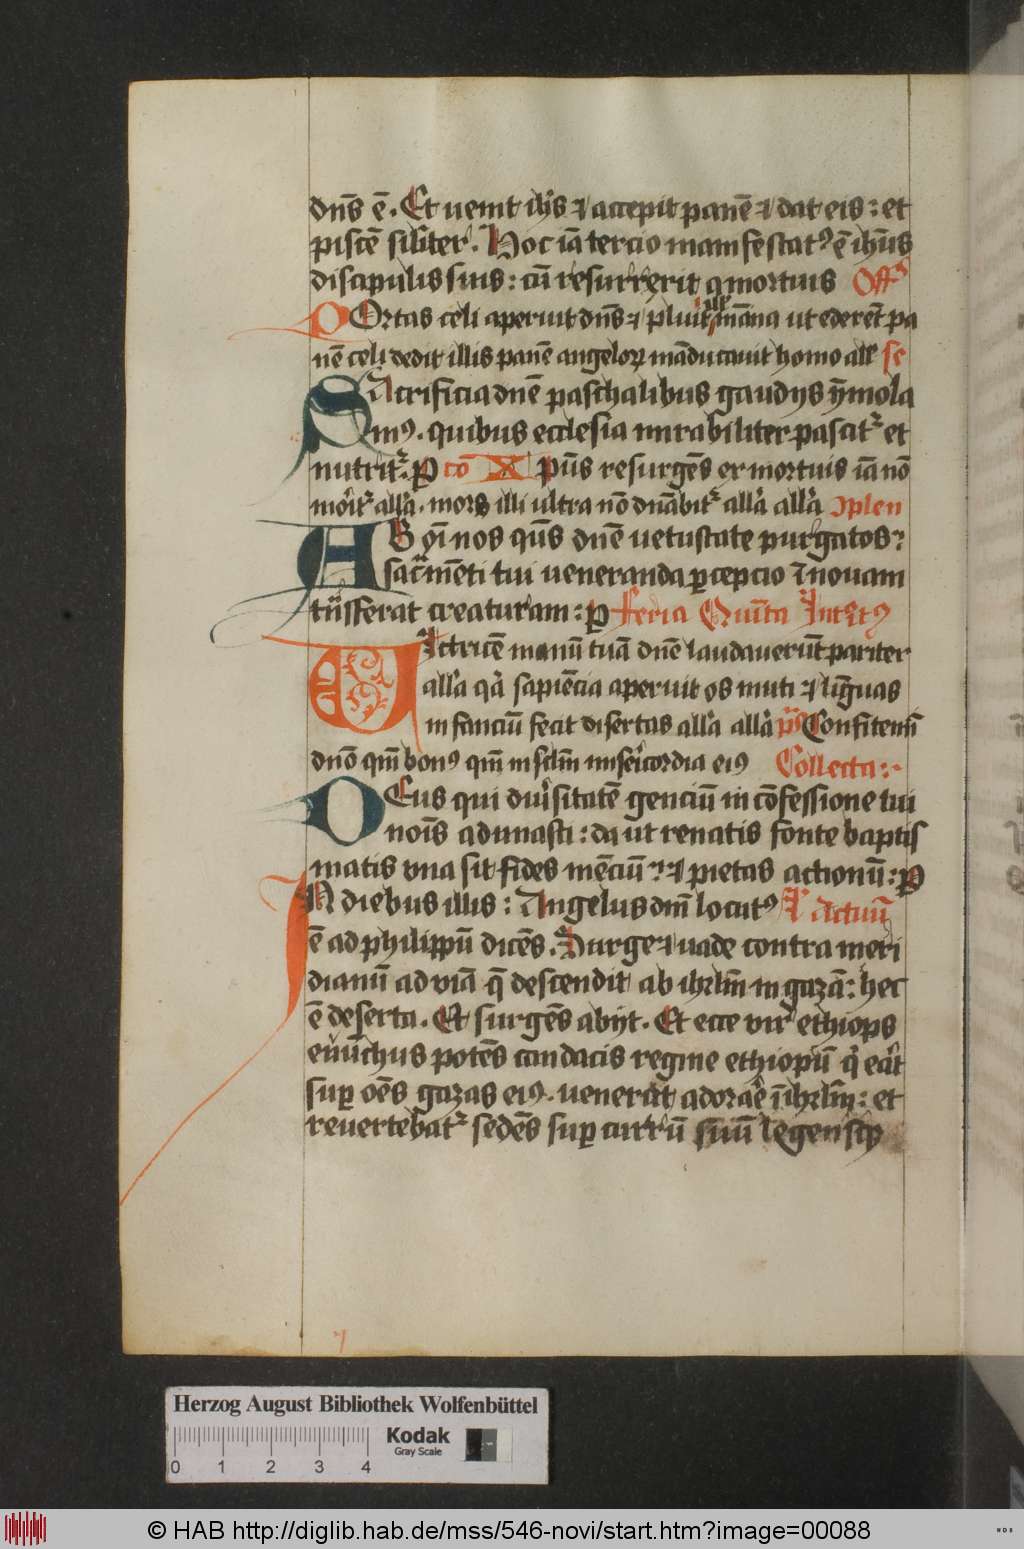 dn̄s ē. Et uenit ih̄s ⁊ accepit panē ⁊ dat eis: et
piscē silr̄iter. Hoc iā tercio manifestatꝰ ē ih̄us
discipulis suis: cū resurrexerit a mortuis Off̄
POrtas celi aperuit dn̄s ⁊ pluit ill̄ māna ut ederēt pa
nē celi dedit illis panē angeloꝝ māducauit homo all̄ se
SAcrificia dn̄e paschalibus gaudijs ȳmola
mꝰ. quibus ecclesia mirabiliter pascit᷑ et
nutrit᷑. ꝑ cō X pūs resurgēs ex mortuis iā nō
morit᷑ all̄a. mors illi ultra nō dn̄abit᷑ all̄a all̄a Jplen
AB oī nos qūs dn̄e uetustate purgatos?
sac̄mēti tui ueneranda ꝑcepcio ī nouam
tn̄sferat creaturam: ꝑ feria Quīta Introitꝰ
Uictricē manū tuā dn̄e laudauerūt pariter
all̄a qȧ sapiēcia aperuit os muti ⁊ līguas
in fanciū fecit disertas all̄a all̄a p̄s Confitemī
dn̄o qm̄ bonꝰ qm̄ in sclm̄ misericordia eiꝰ Collecta:
DEus qui diūsitatē genciū in cōfessione tui
noīs adunasti: da ut renatis fonte baptis
matis vna sit fides mēciū? ⁊ pietas actionū: ꝑ
IN diebus illis: Angelus dn̄i locutꝰ Ł Actuū
ē ad philippū dicēs. Surge ⁊ uade contra meri
dianū ad viā q̄ descendit ab ihrlm̄ in gazā: hec
ē deserta. Et surgēs abijt. Et ecce vir ethiops
eunūchus potēs candacis regine ethiopū q̇ erāt
suꝑ oēs gazas eiꝰ. uenerat adorare ī ihrlm̄: et
reuertebat᷑ sedēs suꝑ currū suū legensqꝫ
Herzog August Bibliothek Wolfenbüttel
Kodak
Gray Scale
0 1 2 3 4
© HAB http://diglib.hab.de/mss/546-novi/start.htm?image=00088